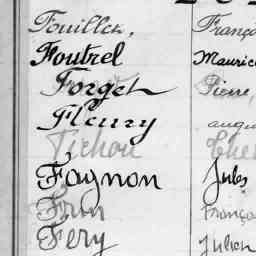 Fouillet, Franço
Foutrel Maurice
Forget Pierre,
Fleury augu
Fichou
Fagnon Jules
Franço
Fery Julien